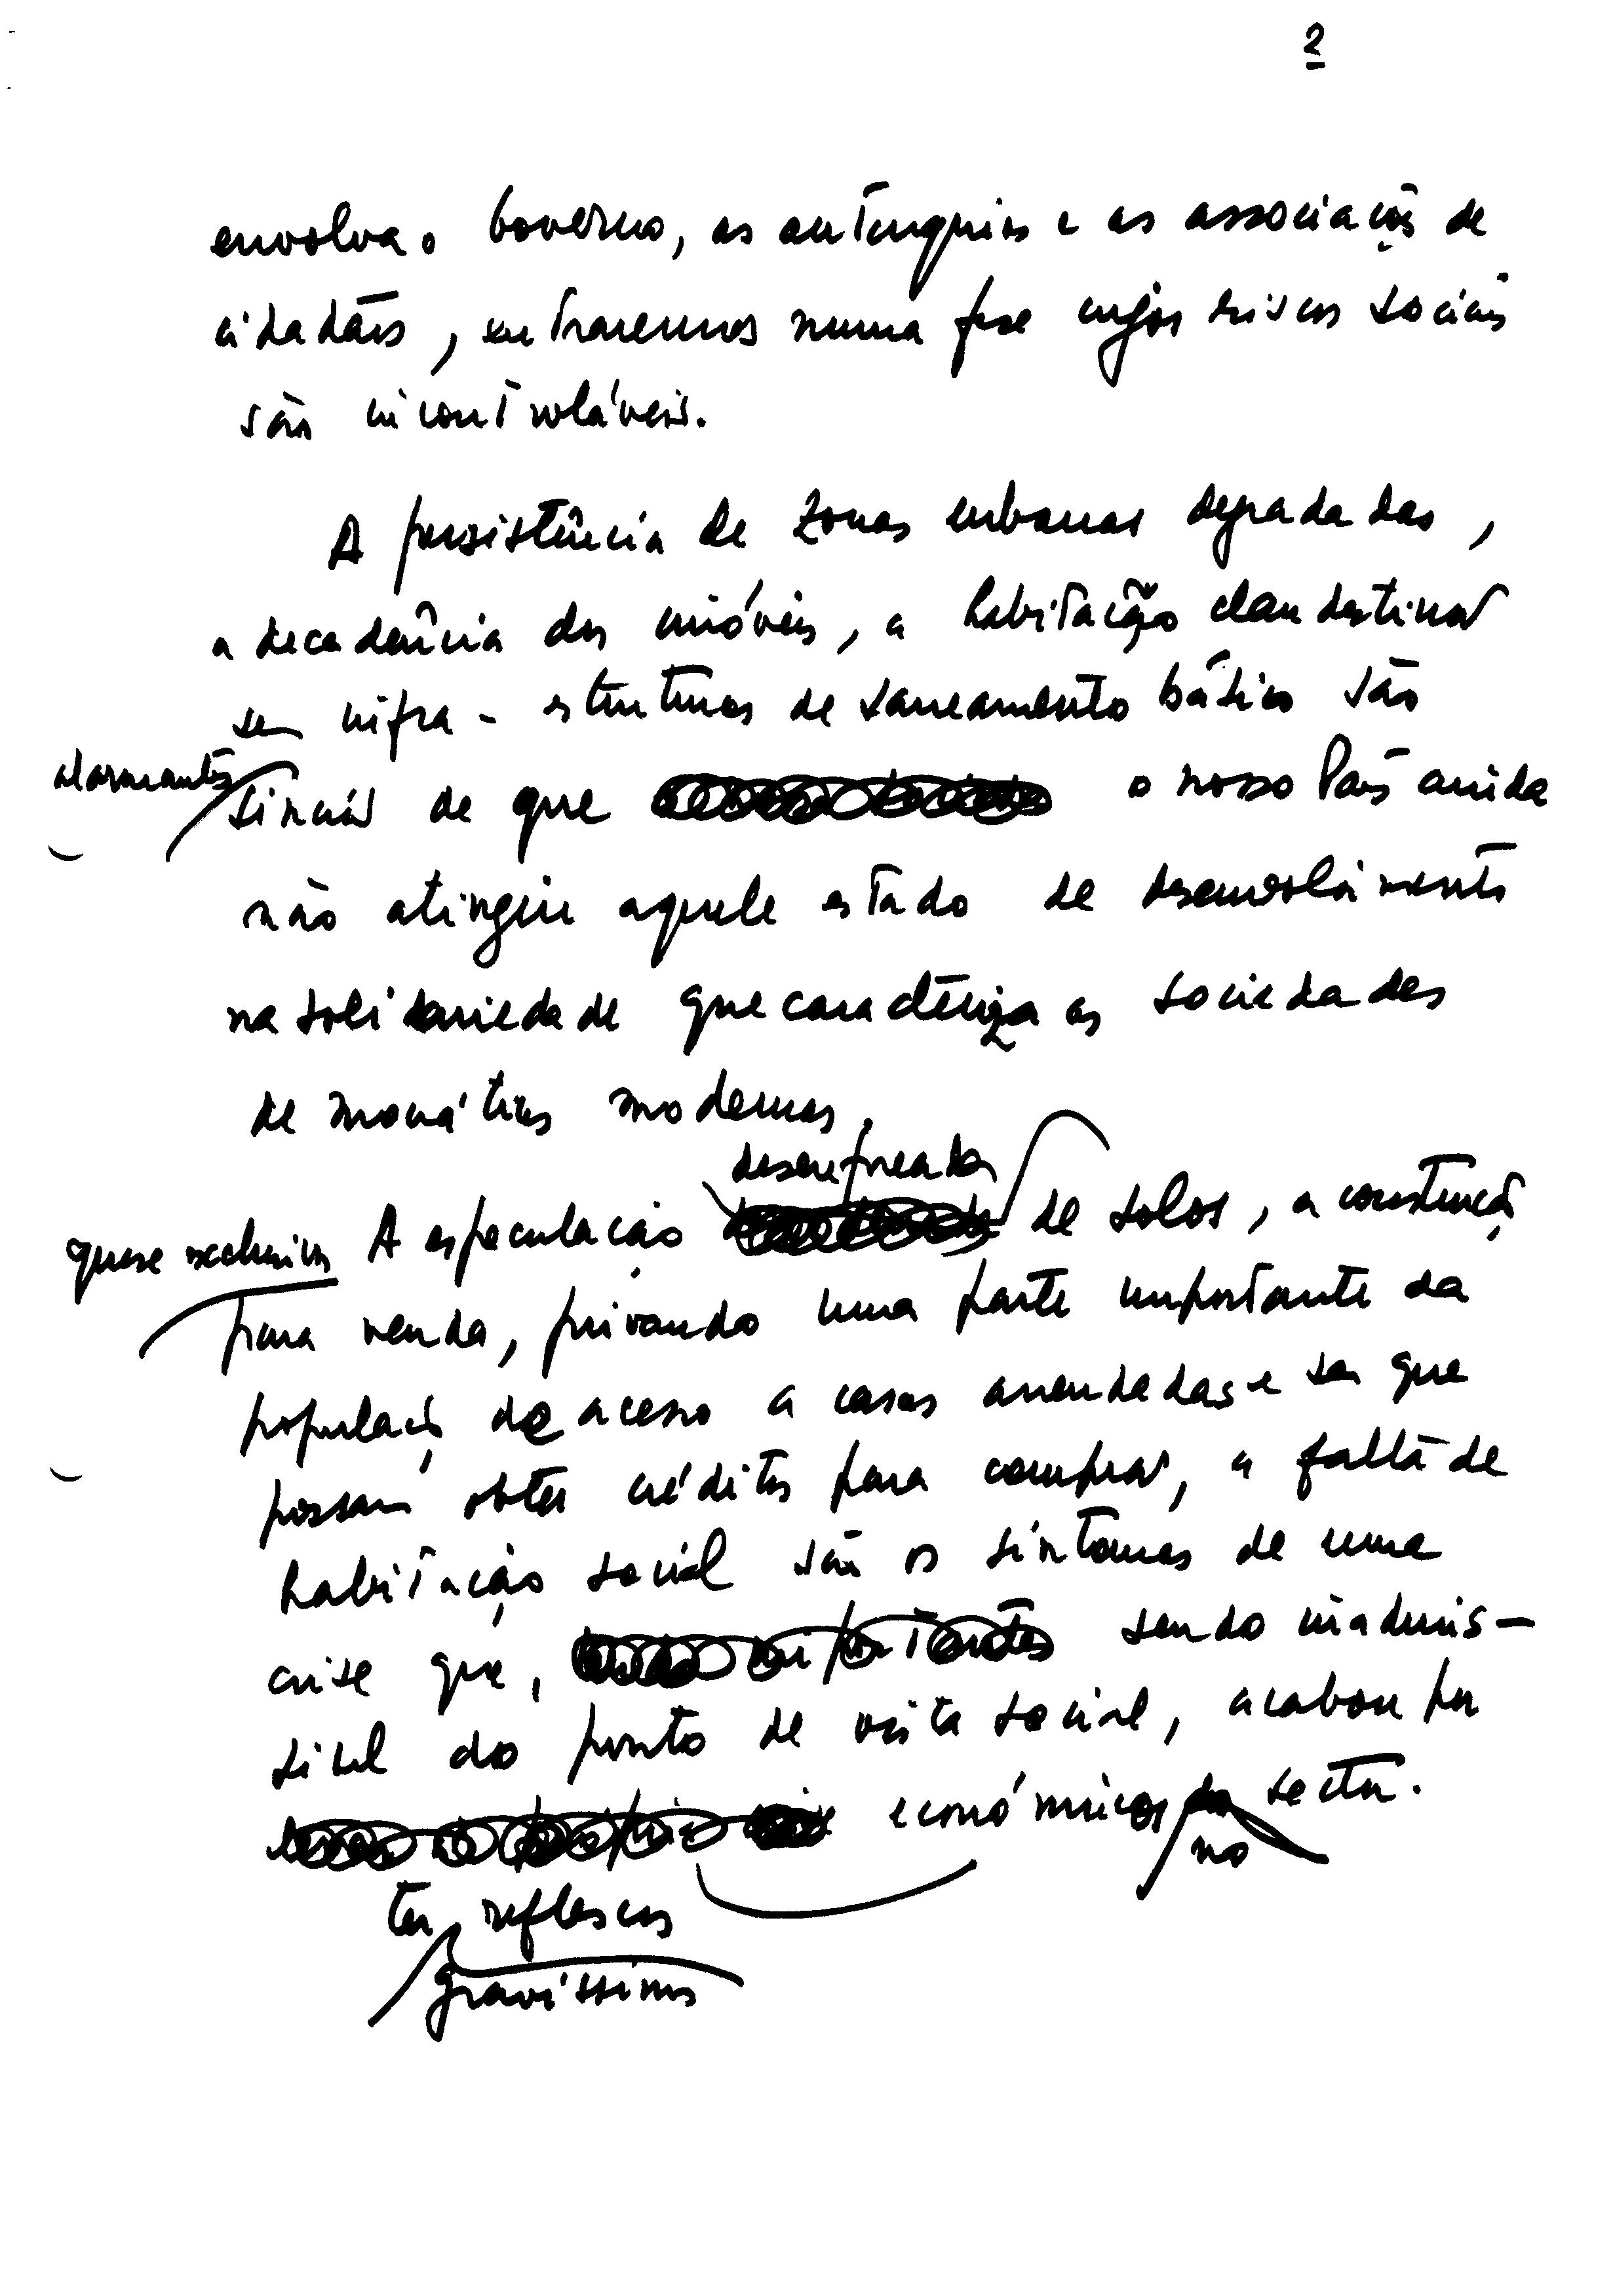 2
envolva o Governo, as autarquias e as associações de
cidadãos, entraremos numa fase cujos riscos sociais
são incontroláveis.
A persistência de zonas urbanas degradadas,
a decadência dos imóveis, a habitação clandestina
sem infra-estruturas de saneamento básico são
alarmantes
sinais de que o nosso País ainda
não atingiu aquele estado de desenvolvimento
na solidariedade que caracteriza as sociedades
democráticas modernas.
desenfreada
quase exclusiva A especulação de solos, a construção
para venda, privando uma parte importante da
população de acesso a casas arrendadas e sem que
possam obter créditos para comprar, a falta de
habitação social são os sintomas de uma
crise que, sendo inadmis-
sível do ponto de vista social, acabou por
económicos sector.
no
ter reflexos
gravíssimos